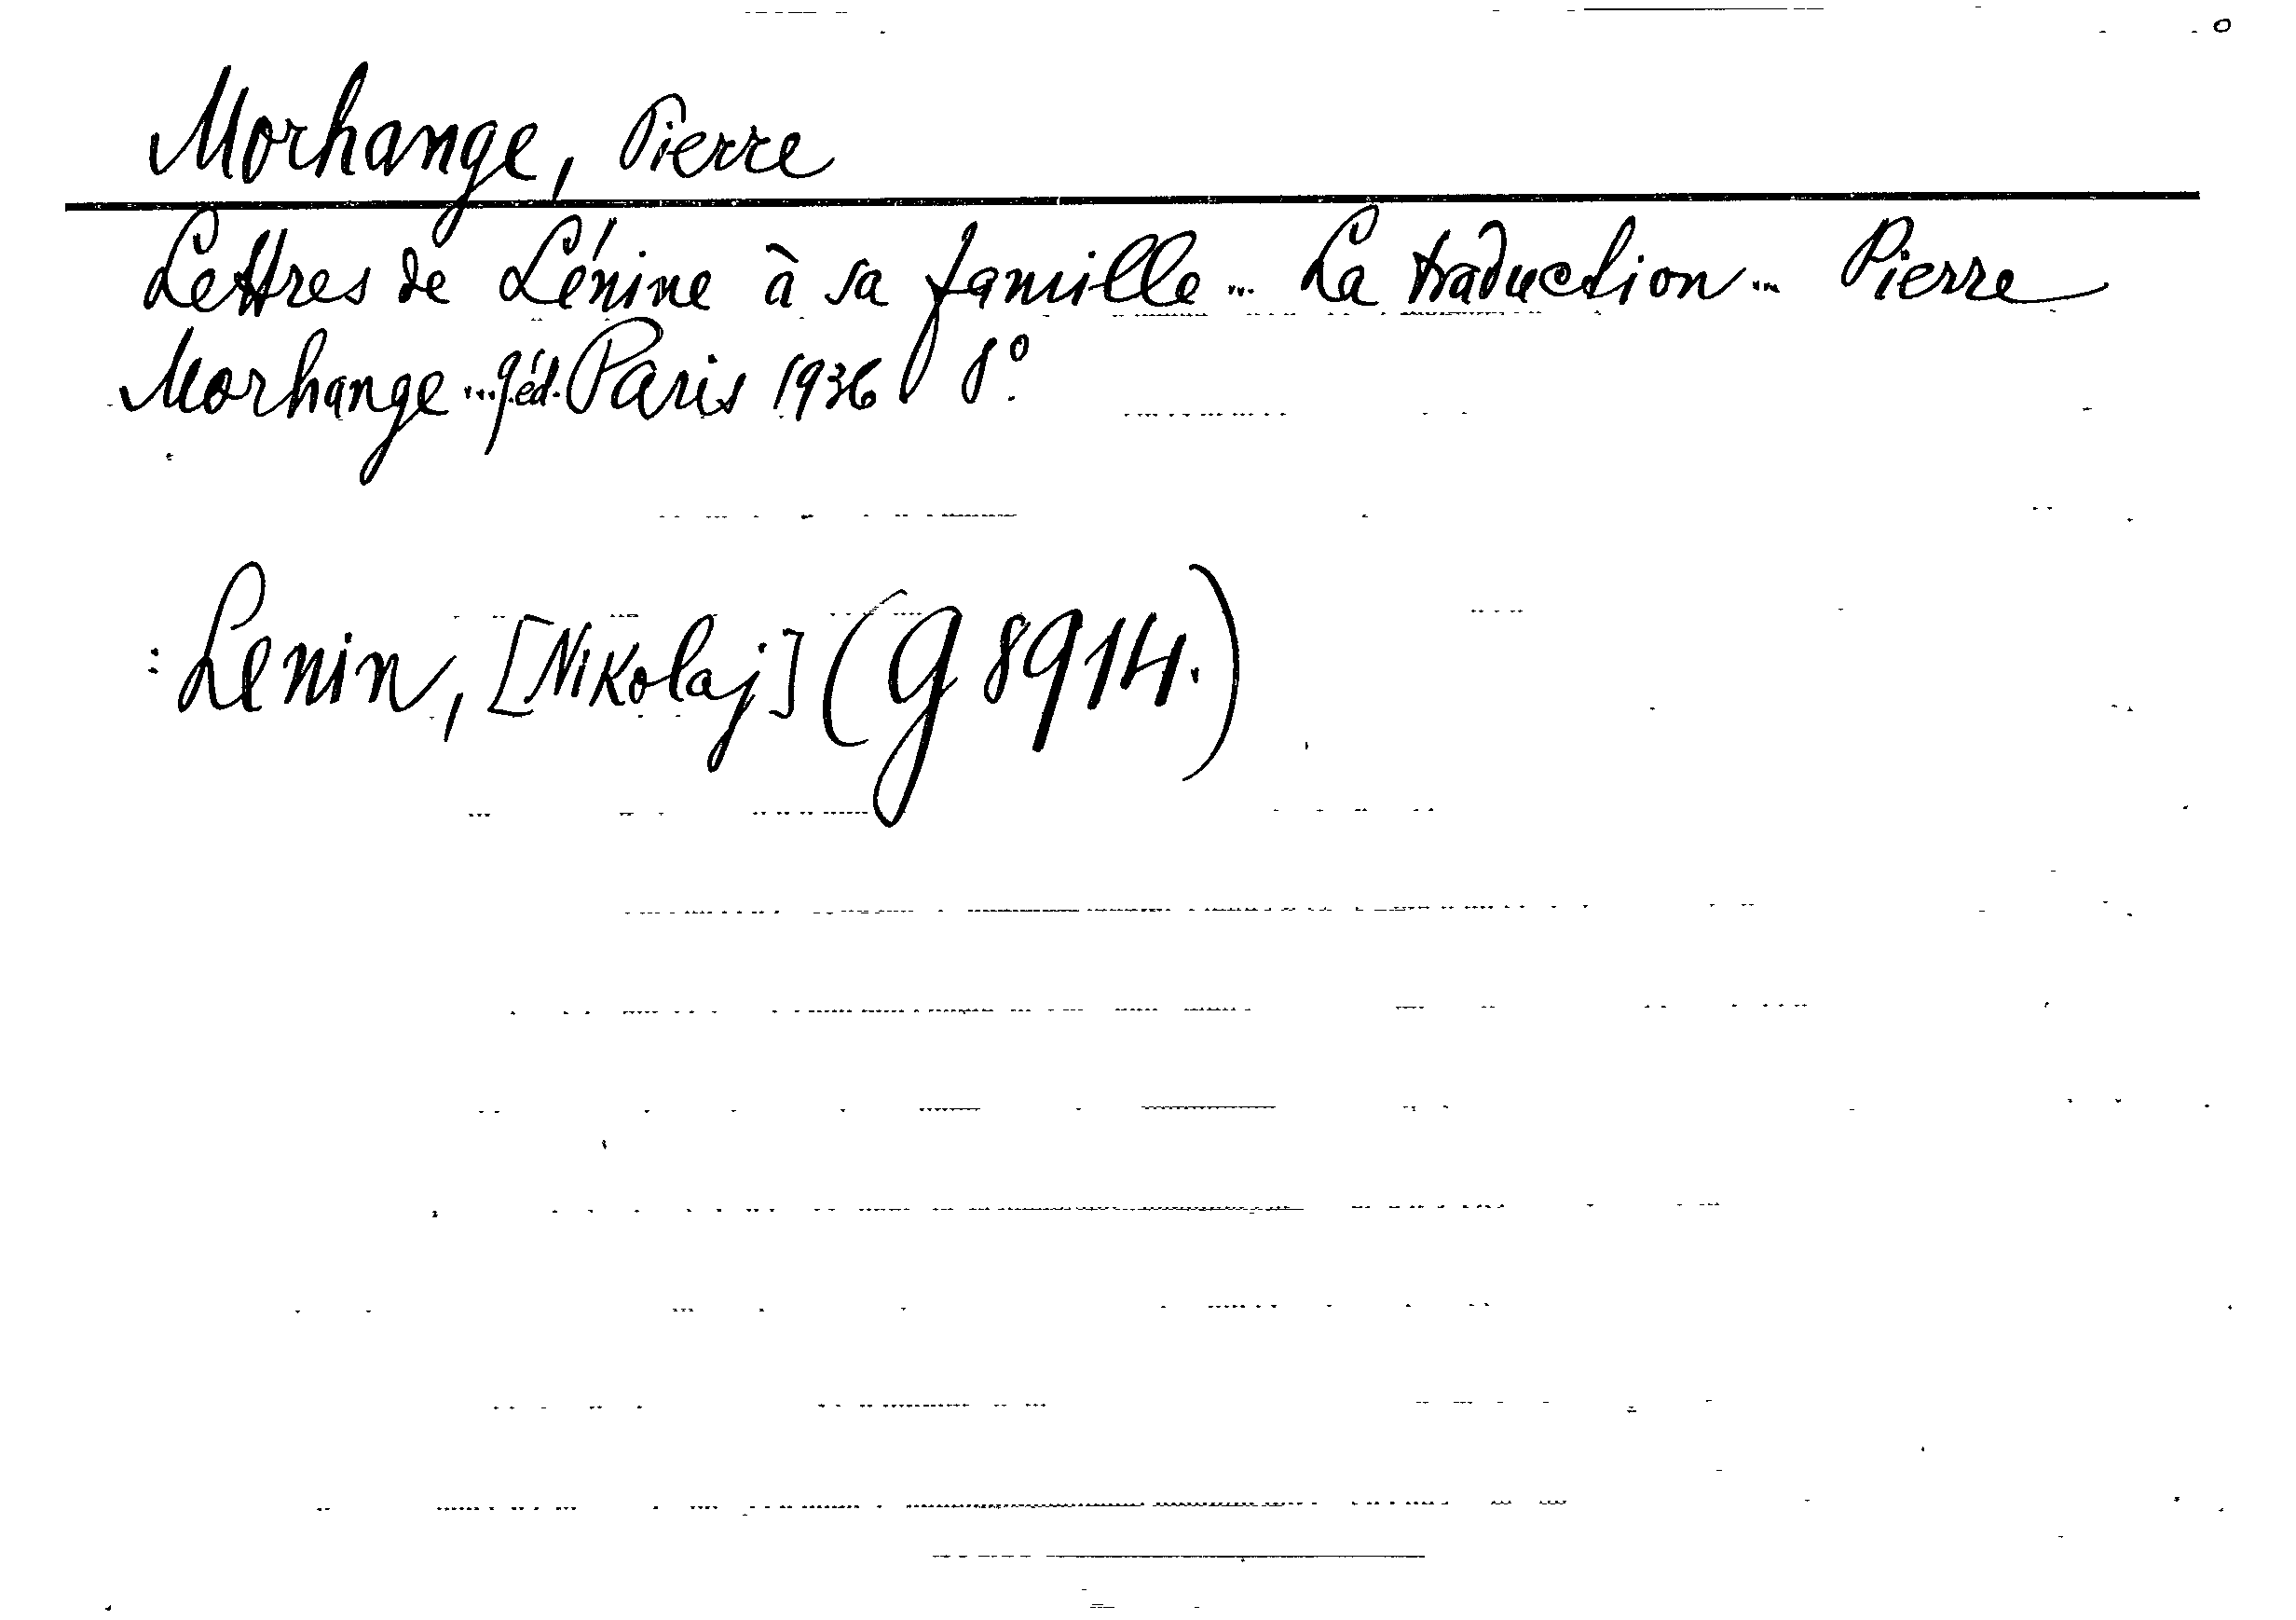 Morhange, Pierre
Lettres de Lénine à sa famille... La traduction... Pierre
Morhange... 9.éd. Paris 1936 8°.
: Lenin, [Nikolaj] (G 8914.)